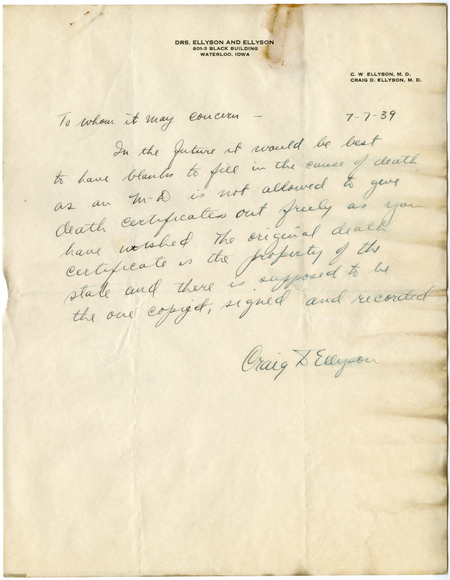 DRS. ELLYSON AND ELLYSON
801-3 BLACK BUILDING
WATERLOO, IOWA
C. W. ELLYSON, M. D.
CRAIG D. ELLYSON, M. D.
To whom it may concern – 7-7-39
In the future it would be best
to have blanks to fill in the cause of death
as an M-D is not allowed to give
death certificates out freely as you
have wished The original death
certificate is the property of the
state and there is supposed to be
the one copied, signed and recorded
Craig D Ellyson